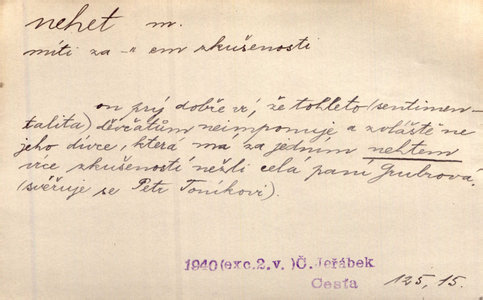 nehet m.
míti za -"em zkušenosti
on prý dobře ví, že tohleto (sentimen-
talita) děvčatům neimponuje a zvláště ne
jeho dívce, která má za jedním nehtem
více zkušeností nežli celá paní Grubrová.
(svěřuje se Petr Toníkovi).
1940(exc.2.v.)Č.Jeřábek
Cesta
125, 15.